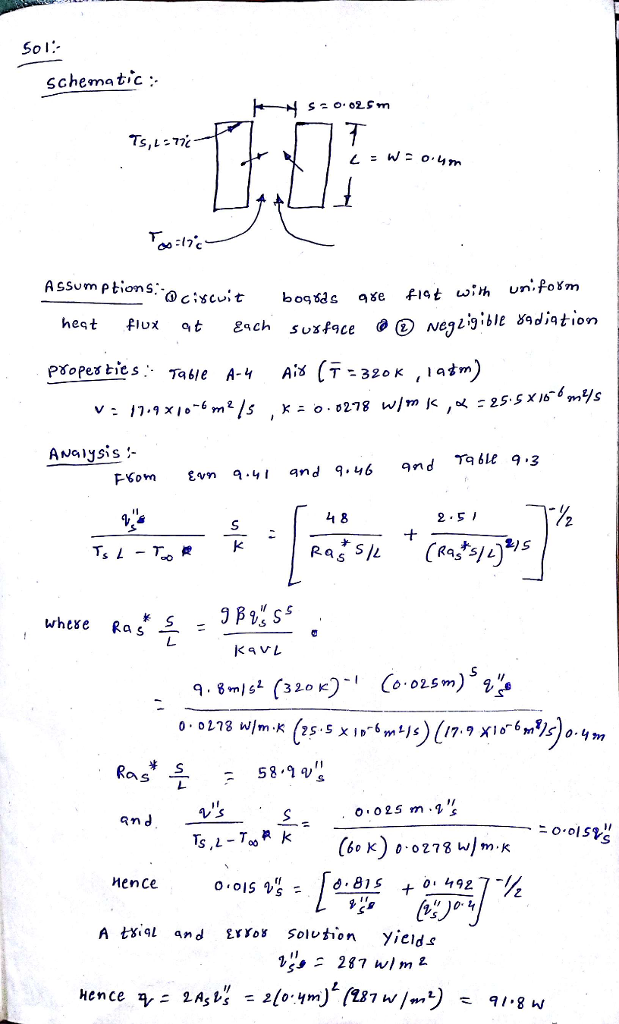 Sol:-
Schematic :-
S = 0.025m
Ts,L = 77°c
L = W = 0.4m
T∞ = 17°c
Assumptions:- ① circuit boards are flat with uniform
heat flux at each surface ② Negligible radiation
properties :- Table A-4 Air (T̄ = 320K, 1atm)
v = 17.9 x 10-6 m2/s, K = 0.0278 W/m K, α = 25.5 x 10-6 m2/s
Analysis :-
From Eqn 9.41 and 9.46 and Table 9.3
q"s / (Ts L - T∞) S/K = [ 48 / (Ras* S/L) + 2.51 / (Ras* S/L)^2/5 ]^-1/2
where Ras* S/L = gβq"s S5 / KαvL
= 9.8m/s2 (320K)-1 (0.025m)5 q"s / 0.0278 W/m.K (25.5 x 10-6 m2/s) (17.9 x 10-6 m2/s) 0.4m
Ras* S/L = 58.9 q"s
and q"s / (Ts,L - T∞) S/K = 0.025 m.q"s / (60K) 0.0278 W/m.K = 0.015q"s
Hence 0.015 q"s = [ 0.815 / q"s + 0.492 / (q"s)0.4 ]^-1/2
A trial and Error solution yields
q"s = 287 W/m2
Hence q = 2As q"s = 2(0.4m)2 (287 W/m2) = 91.8 W